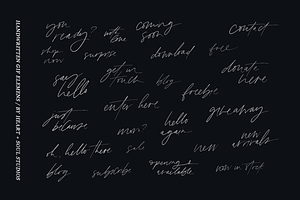 HANDWRITTEN GIF ELEMENTS BY HEART + SOUL STUDIOS
you ready?
with love
coming soon
contact
shop now
surprise
download
free
say hello
get in touch
blog
freebie
donate here
just because
enter here
hello again
giveaway
more?
oh, hello there
sale
new
new arrivals
blog
subscribe
opening + available
now in stock